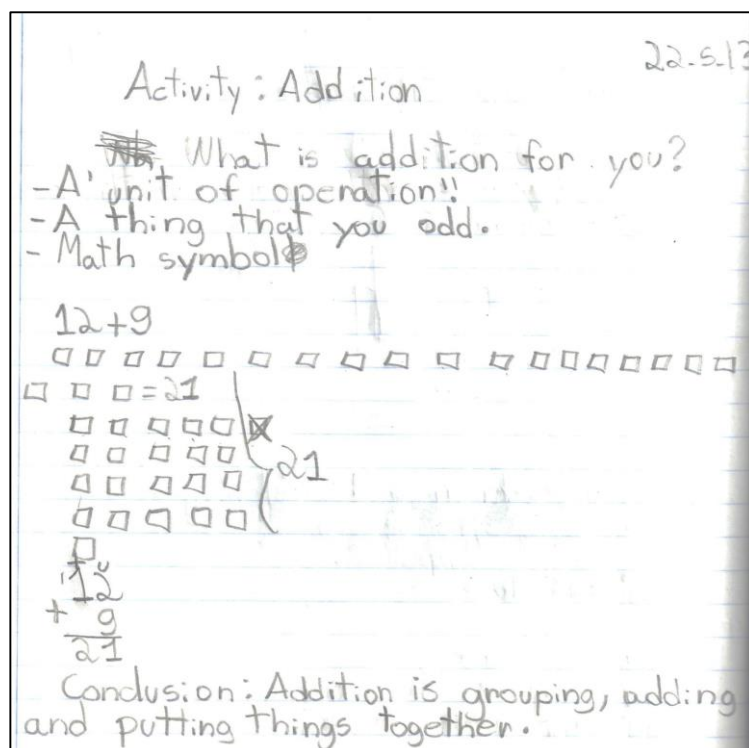 22-5-13
Activity: Addition
What is addition for you?
- A unit of operation!!
- A thing that you odd.
- Math symbol
12+9
= 21
21
1
12
+ 9
21
Conclusion: Addition is grouping, adding
and putting things together.